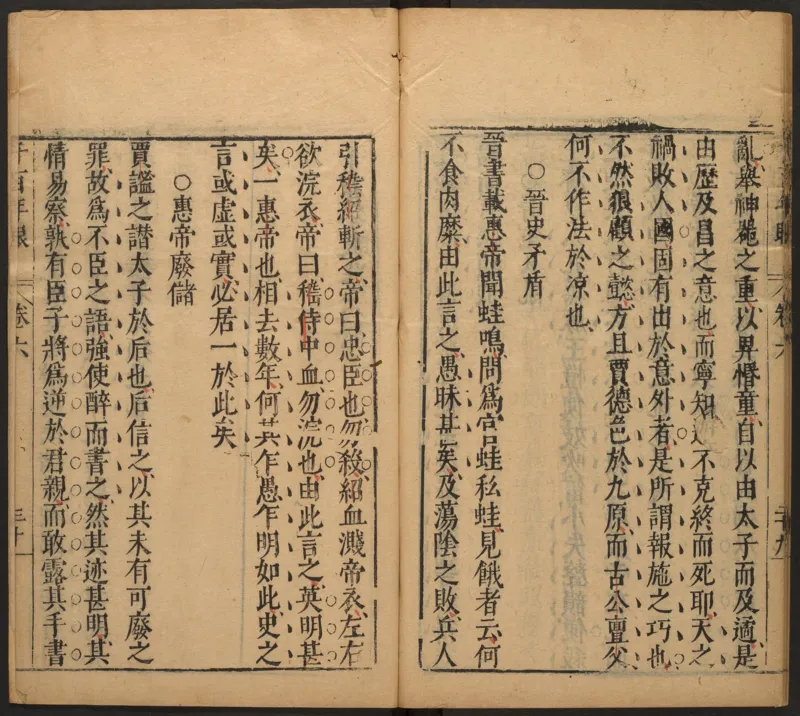 亂舉神噐之重以畀㦖童自以由太子而及適是
由歷及昌之意也而寧知不克終而死耶天之
禍敗人國固有出於意外者是所謂報施之巧也
不然狼顧之懿方且賈德色於九原而古公亶父
何不作法於凉也
○晉史矛盾
晉書載惠帝聞蛙鳴問爲官蛙私蛙見餓者云何
不食肉糜由此言之愚昧甚矣及蕩陰之敗兵人
卷六
二十九
引稽紹斬之帝曰忠臣也勿殺紹血濺帝衣左右
欲浣衣帝曰稽侍中血勿浣也由此言之英明甚
矣一惠帝也相去數年何其乍愚乍明如此史之
言或虛或實必居一於此矣
○惠帝廢儲
賈謐之譖太子於后也后信之以其未有可廢之
罪故爲不臣之語強使醉而書之然其迹甚明其
情易察孰有臣子將爲逆於君親而敢露其手書
千百年眼
卷六
三十